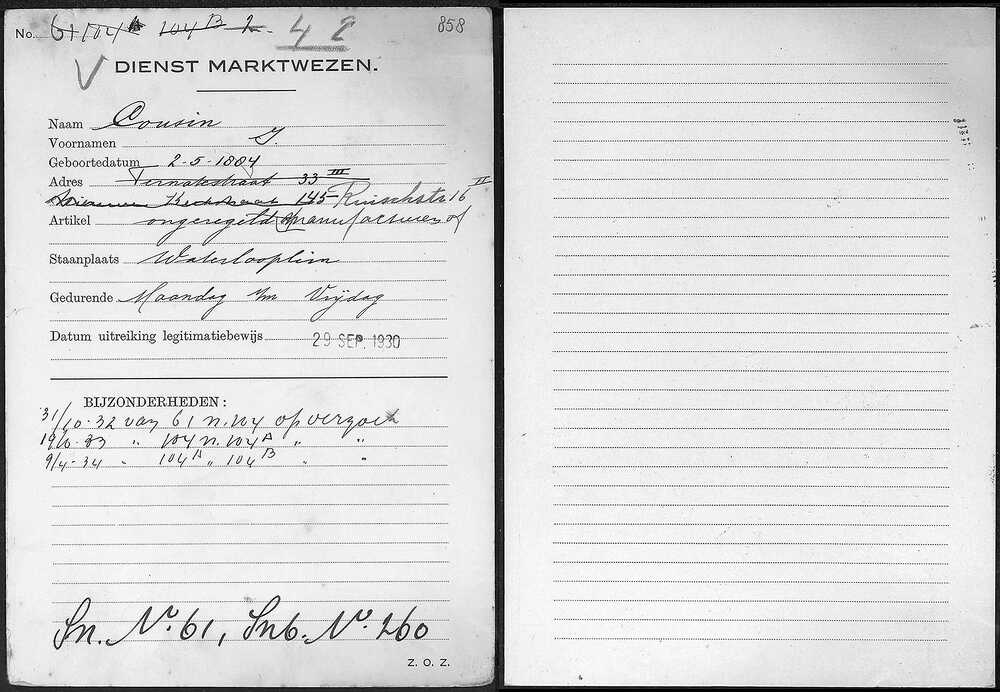 No. 61 104 A 104 B 2. 42 858
V DIENST MARKTWEZEN.
Naam Cousin
Voornamen J.
Geboortedatum 2-5-1884
Adres Ternatestraat 33 III
Kerkstraat 145 Ruischstr. 16 II
Artikel ongeregeld manufacturen of
Staanplaats Waterlooplein
Gedurende Maandag t/m Vrijdag
Datum uitreiking legitimatiebewijs 29 SEP. 1930
BIJZONDERHEDEN:
31/10-32 van 61 n. 104 op verzoek
19/10-33 " 104 n. 104 A " "
9/4-34 " 104 A " 104 B " "
Sn. No. 61, Snb. No. 260
Z. O. Z.